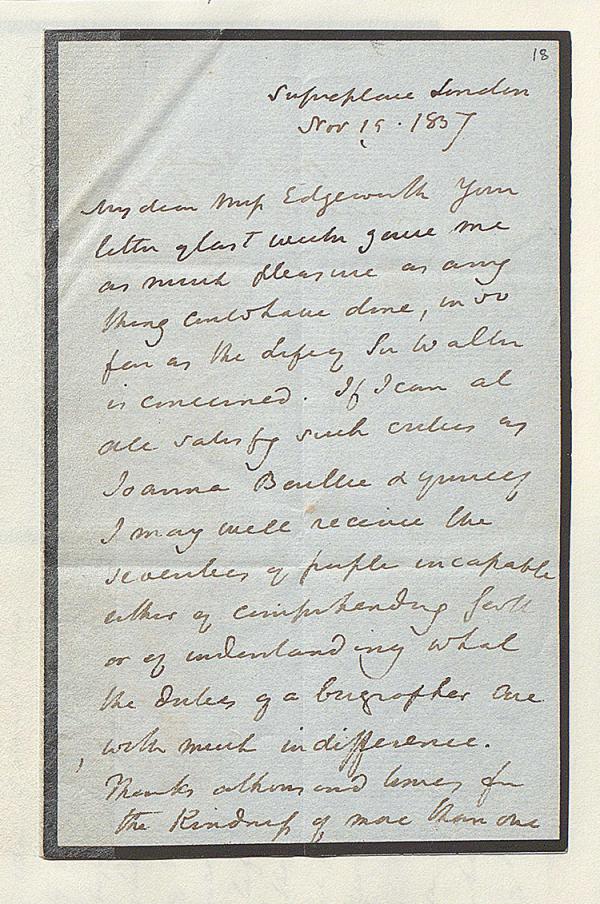 18
Sussexplace London
Nov 19. 1837
My dear Miss Edgeworth Your
letter of last week gave me
as much pleasure as any
thing could have done, in so
far as the Life of Sir Walter
is concerned. If I can at
all satisfy such critics as
Joanna Baillie & yourself
I may well receive the
severities of people incapable
either of comprehending Scott
or of understanding what
the duties of a biographer are
with much indifference.
Thanks a thousand times for
the Kindness of more than one